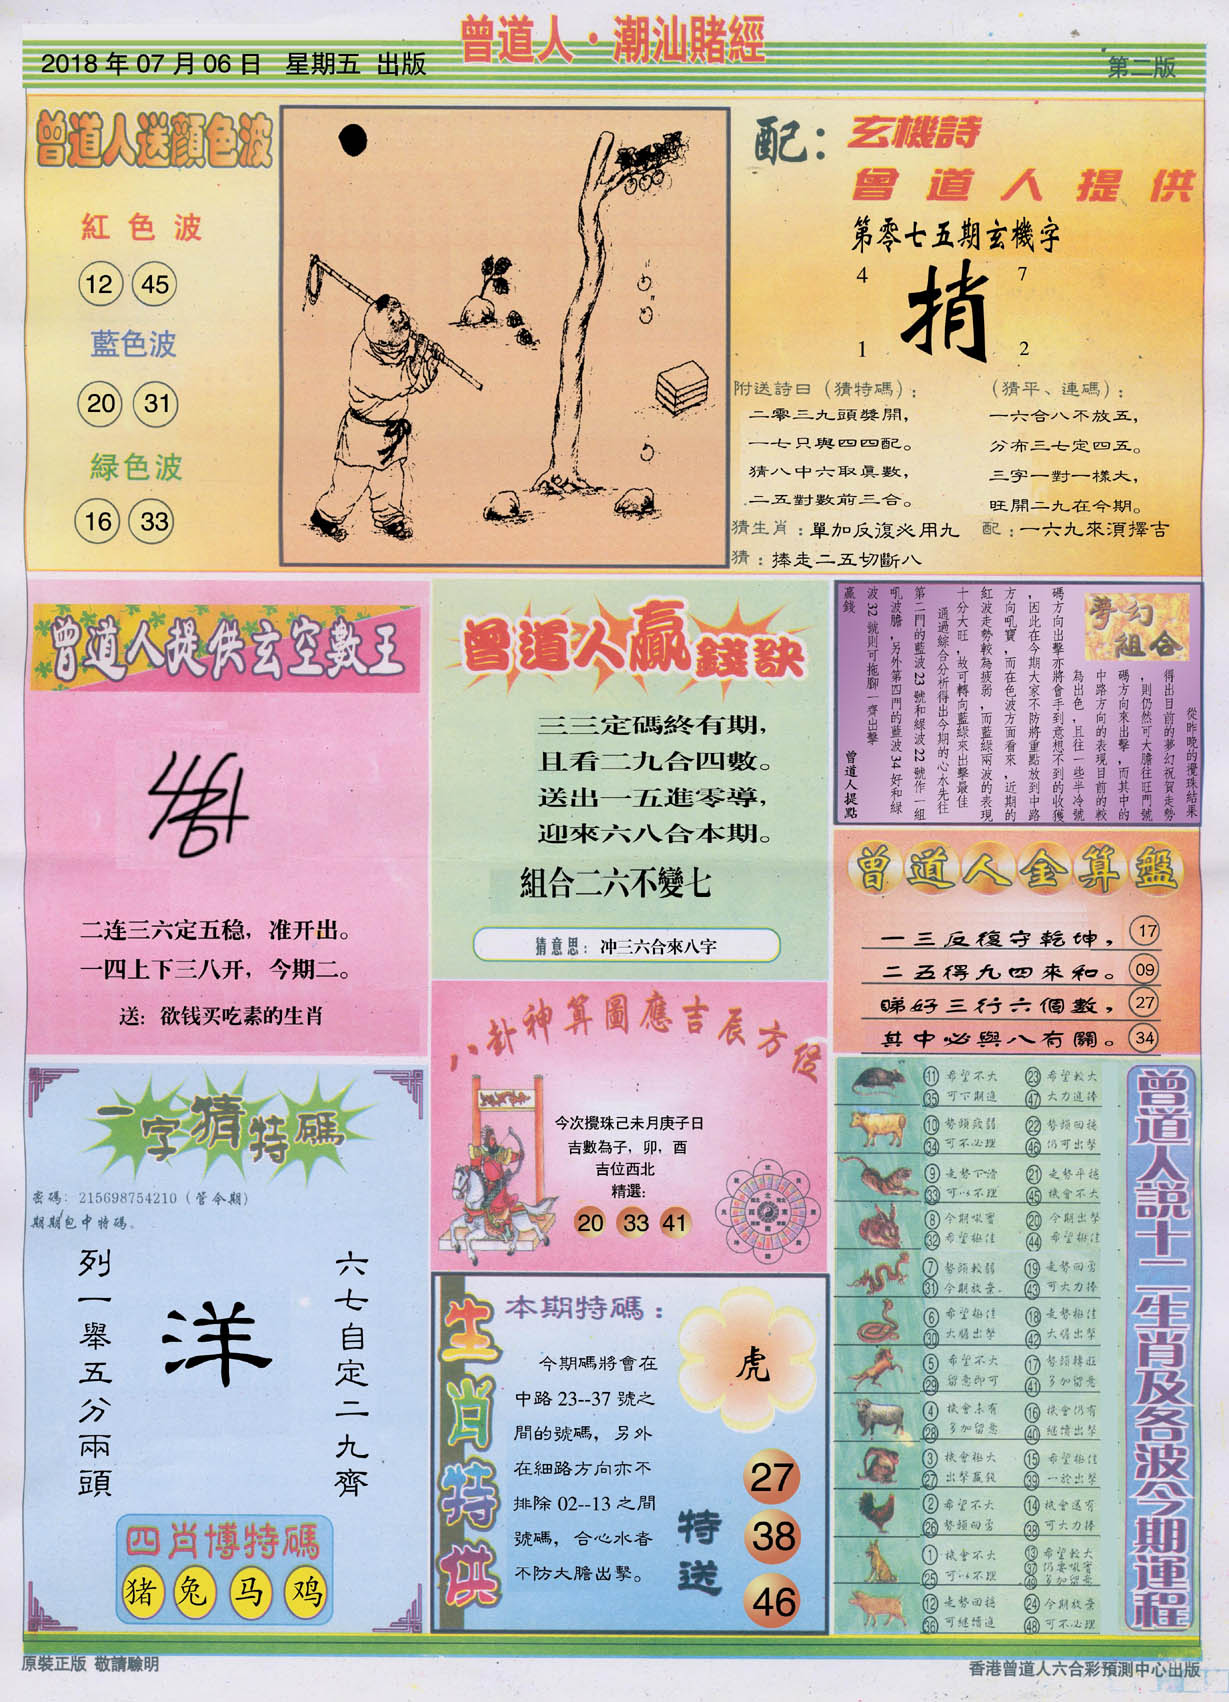 曾道人·潮汕賭經
2018年07月06日 星期五 出版
第二版
曾道人送顏色波
紅色波
12 45
藍色波
20 31
緑色波
16 33
配：玄機詩
曾道人提供
第零七五期玄機字
4 7
捎
1 2
附送詩曰（猜特碼）：
二零三九頭獎開，
一七只與四四配。
猜八中六取眞數，
二五對數前三合。
（猜平、連碼）：
一六合八不放五，
分布三七定四五。
三字一對一樣大，
旺開二九在今期。
猜生肖：單加反復必用九
配：一六九來須擇吉
猜：捧走二五切斷八
曾道人提供玄空數王
二连三六定五稳，准开出。
一四上下三八开，今期二。
送：欲钱买吃素的生肖
曾道人贏錢訣
三三定碼終有期，
且看二九合四數。
送出一五進零導，
迎來六八合本期。
組合二六不變七
猜意思：冲三六合來八字
夢幻組合
從昨晚的攪珠結果
得出目前的夢幻祝賀走勢
，則仍然可大膽往旺門號
碼方向來出擊，而其中的
中路方向的表現目前的較
為出色，且往一些半冷號
碼方向出擊亦將會手到意想不到的收獲
，因此在今期大家不防將重點放到中路
方向吼寶，而在色波方面看來，近期的
紅波走勢較為疲弱，而藍綠兩波的表現
十分大旺，故可轉向藍綠來出擊最佳
通過綜合分析得出今期的心水先往
第二門的藍波23號和綠波22號作一組
吼波膽，另外第四門的藍波34好和綠
波32號則可拖腳一齊出擊
贏錢
曾道人提點
曾道人金算盤
一三反復守乾坤， 17
二五得九四來和。 09
睇好三行六個數， 27
其中必與八有關。 34
八卦神算圖應吉辰方位
今次攪珠己未月庚子日
吉數為子，卯，酉
吉位西北
精選：
20 33 41
一字猜特碼
密碼：215698754210（管令期）
期期包中特碼。
列一舉五分兩頭
洋
六七自定二九齊
四肖博特碼
猪 兔 马 鸡
生肖特供
本期特碼：
虎
今期碼將會在
中路23--37號之
間的號碼，另外
在細路方向亦不
排除02--13之間
號碼，合心水者
不防大膽出擊。
特送
27
38
46
曾道人説十二生肖及各波今期運程
11 希望不大 23 希望較大
35 可下期進 47 大力追捧
10 勢頭疲弱 22 勢頭回穩
34 可不必理 46 仍可出擊
9 走勢下滑 21 走勢平穩
33 可以不理 45 機會不大
8 今期吸寶 20 今期出擊
32 希望極佳 44 希望極佳
7 勢頭較弱 19 走勢回勇
31 今期放棄 43 可大力捧
6 希望極佳 18 走勢極佳
30 大膽出擊 42 大膽出擊
5 希望不大 17 勢頭轉旺
29 留意即可 41 多加留意
4 機會未有 16 機會仍有
28 多加留意 40 繼續出擊
3 機會極大 15 希望極佳
27 出擊贏錢 39 一於出擊
2 希望不大 14 機會還有
26 勢頭回勇 38 可大力捧
1 機會不大 13 希望較大
25 可以不理 37 仍要吸寶
49 多加留意
12 走勢回穩 24 今期放棄
36 可繼續追 48 可不必理
原裝正版 敬請驗明
香港曾道人六合彩預測中心出版